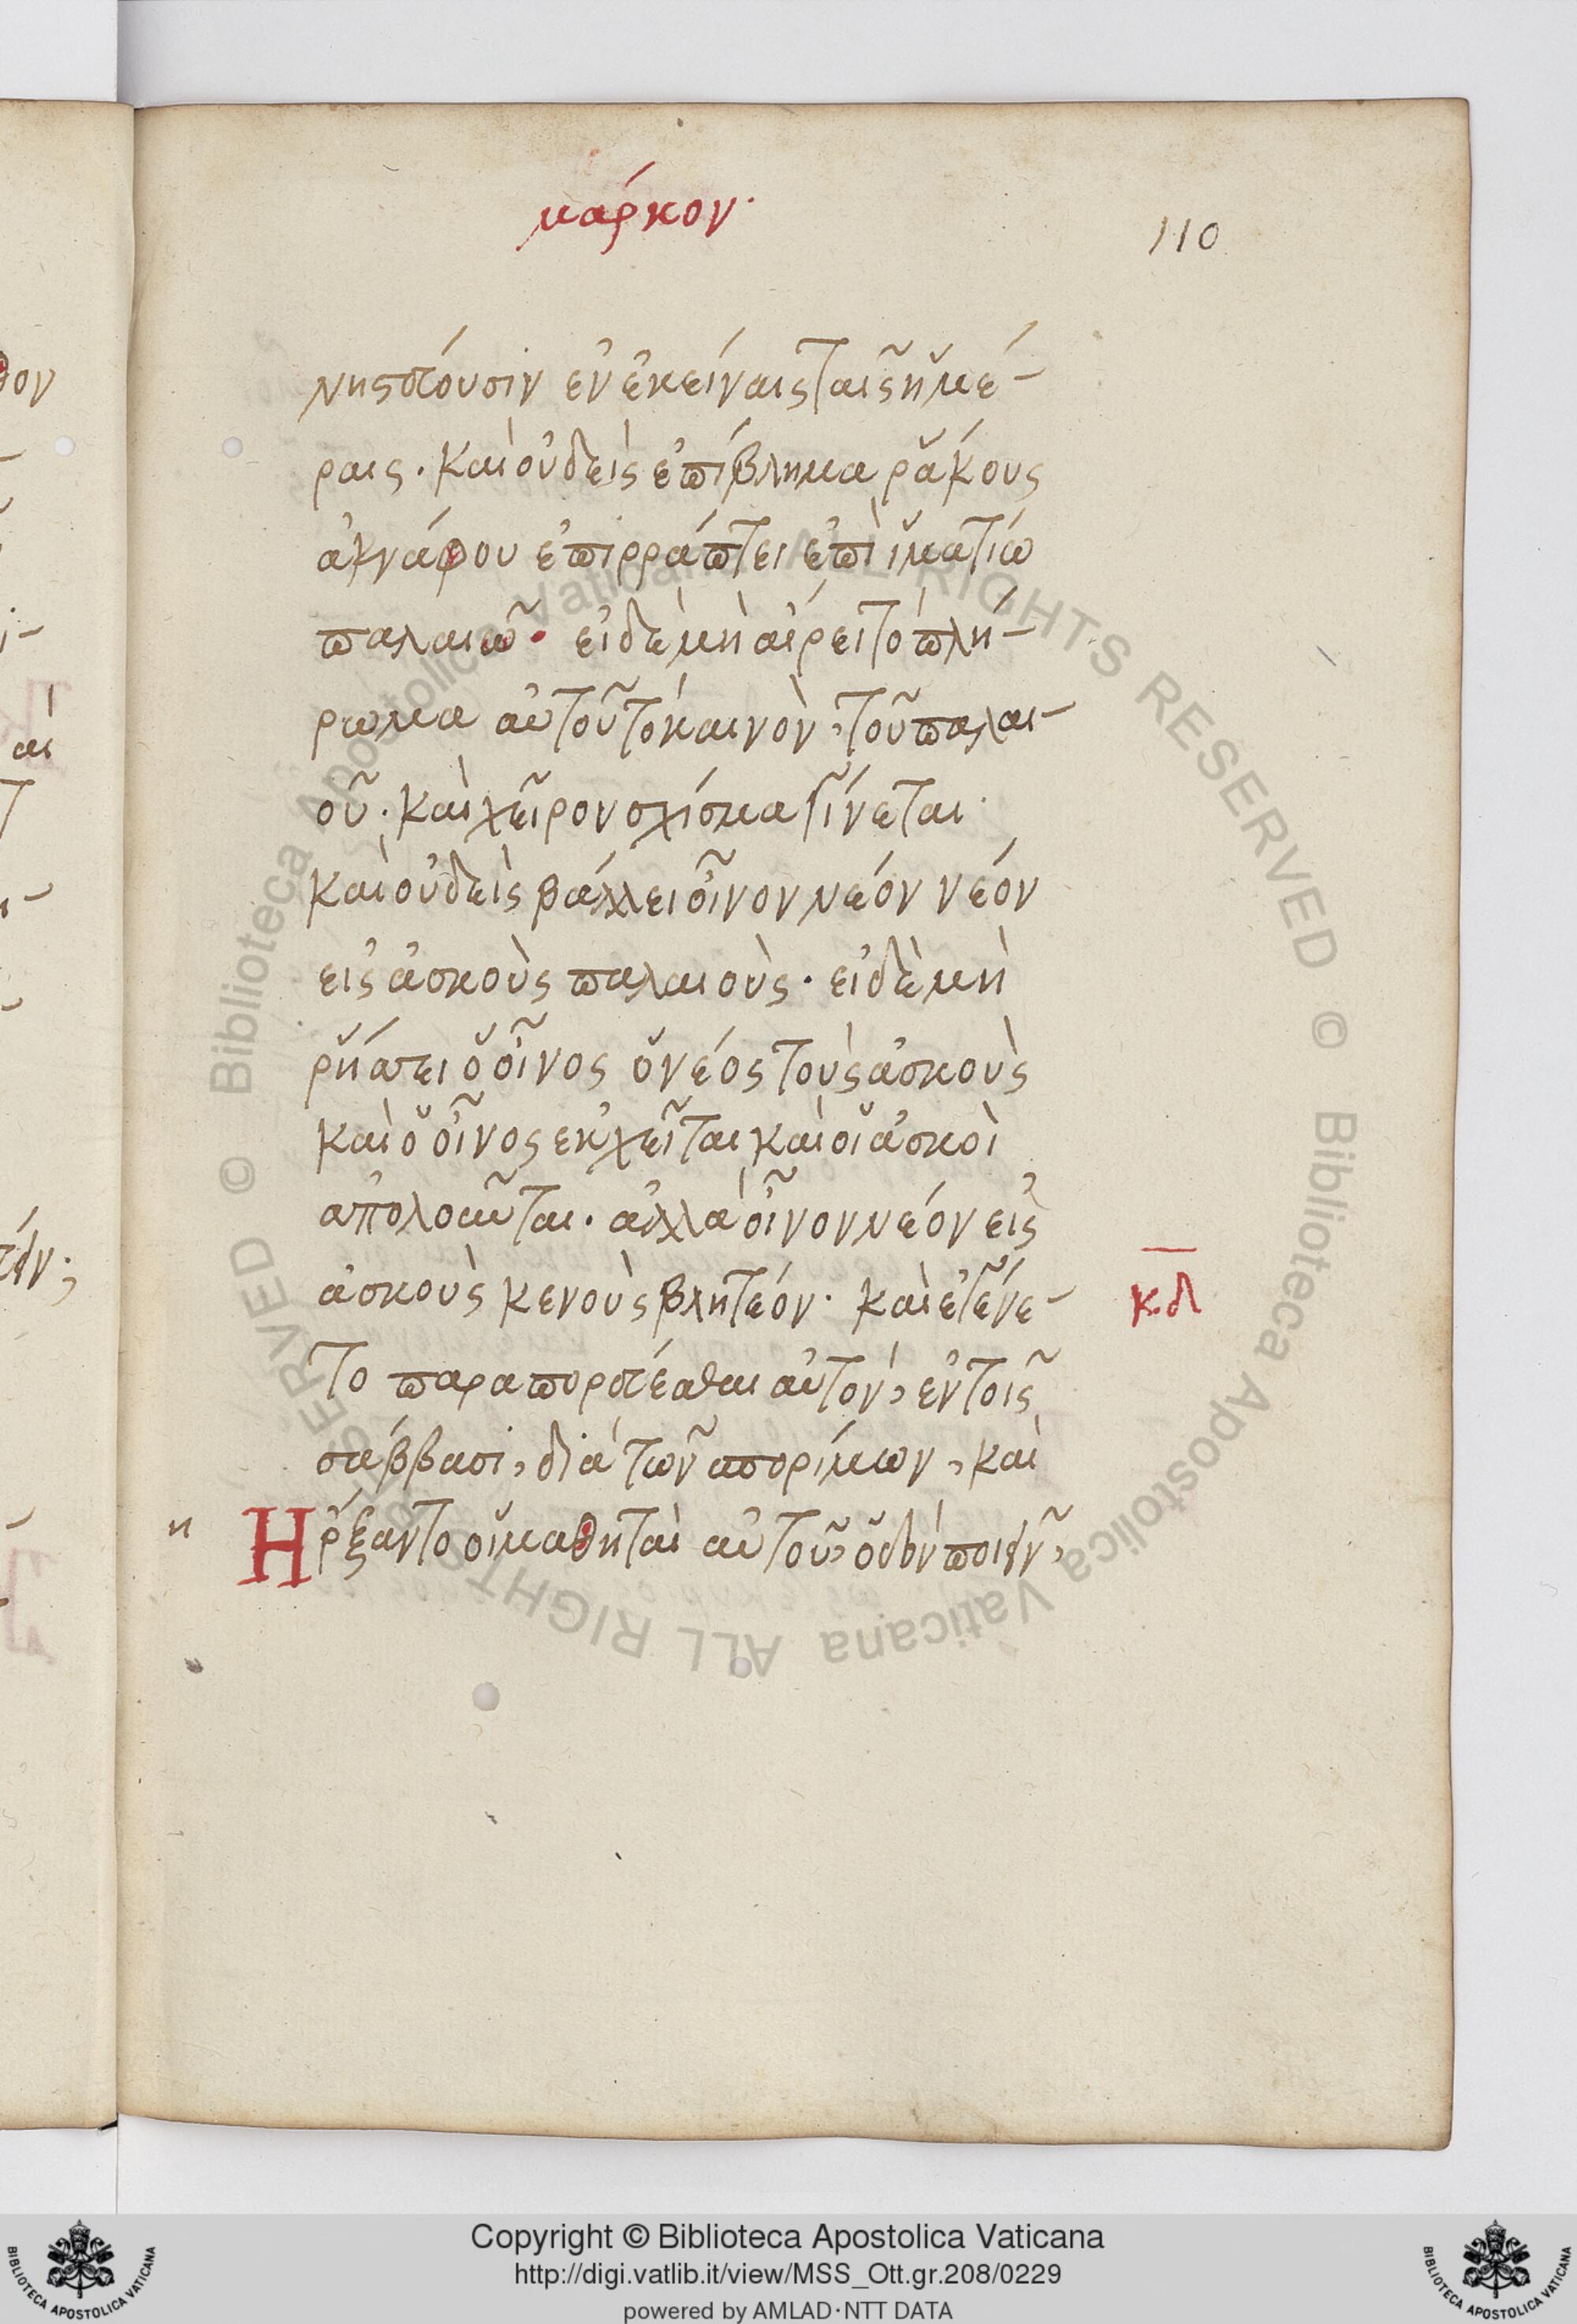 μάρκον·
110
νηστεύουσιν ἐν ἐκείναις ταῖς ἡμέ-
ραις. καὶ οὐδεὶς ἐπίβλημα ῥάκους
ἀγνάφου ἐπιρράπτει ἐπὶ ἱματίω
παλαιῶ. εἰ δὲ μὴ αἴρει τὸ πλή-
ρωμα αὐτοῦ τὸ καινὸν, τοῦ παλαι-
οῦ. καὶ χεῖρον σχίσμα γίνεται·
καὶ οὐδεὶς βάλλει οἶνον νέον νέον
εἰς ἀσκοὺς παλαιοὺς. εἰ δὲ μὴ
ῥήσσει ὁ οἶνος ὁ νέος τοὺς ἀσκοὺς
καὶ ὁ οἶνος ἐκχεῖται καὶ οἱ ἀσκοὶ
ἀπολοῦνται. ἀλλὰ οἶνον νέον εἰς
ἀσκοὺς κενοὺς βλητέον. καὶ ἐγένε-
κδ
το παραπορεύεσθαι αὐτὸν, ἐν τοῖς
σάββασι, διὰ τῶν σπορίμων, καὶ
η
Ἤρξαντο οἱ μαθηταὶ αὐτοῦ, ὁδὸν ποιεῖν,
Copyright © Biblioteca Apostolica Vaticana
http://digi.vatlib.it/view/MSS_Ott.gr.208/0229
powered by AMLAD·NTT DATA
BIBLIOTECA APOSTOLICA VATICANA
BIBLIOTECA APOSTOLICA VATICANA